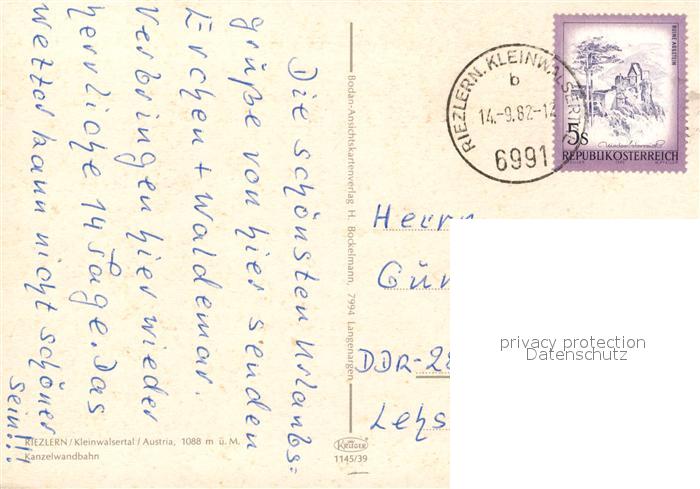 Die schönsten Urlaubs=
grüße von hier senden
Erchen + Waldemar.
Verbringen hier wieder
herrliche 14 Tage. Das
Wetter kann nicht schöner
sein!!!
RIEZLERN / Kleinwalsertal / Austria, 1088 m ü. M.
Kanzelwandbahn
Bodan-Ansichtskartenverlag H. Bockelmann, 7994 Langenargen
KRÜGER
1145/39
RIEZLERN, KLEINWALSERT
b
14.-9.82-12
6991
RUINE AGGSTEIN
5s
Niederösterreich
REPUBLIK ÖSTERREICH
Herrn
Gün
DDR-28
Lehs
privacy protection
Datenschutz